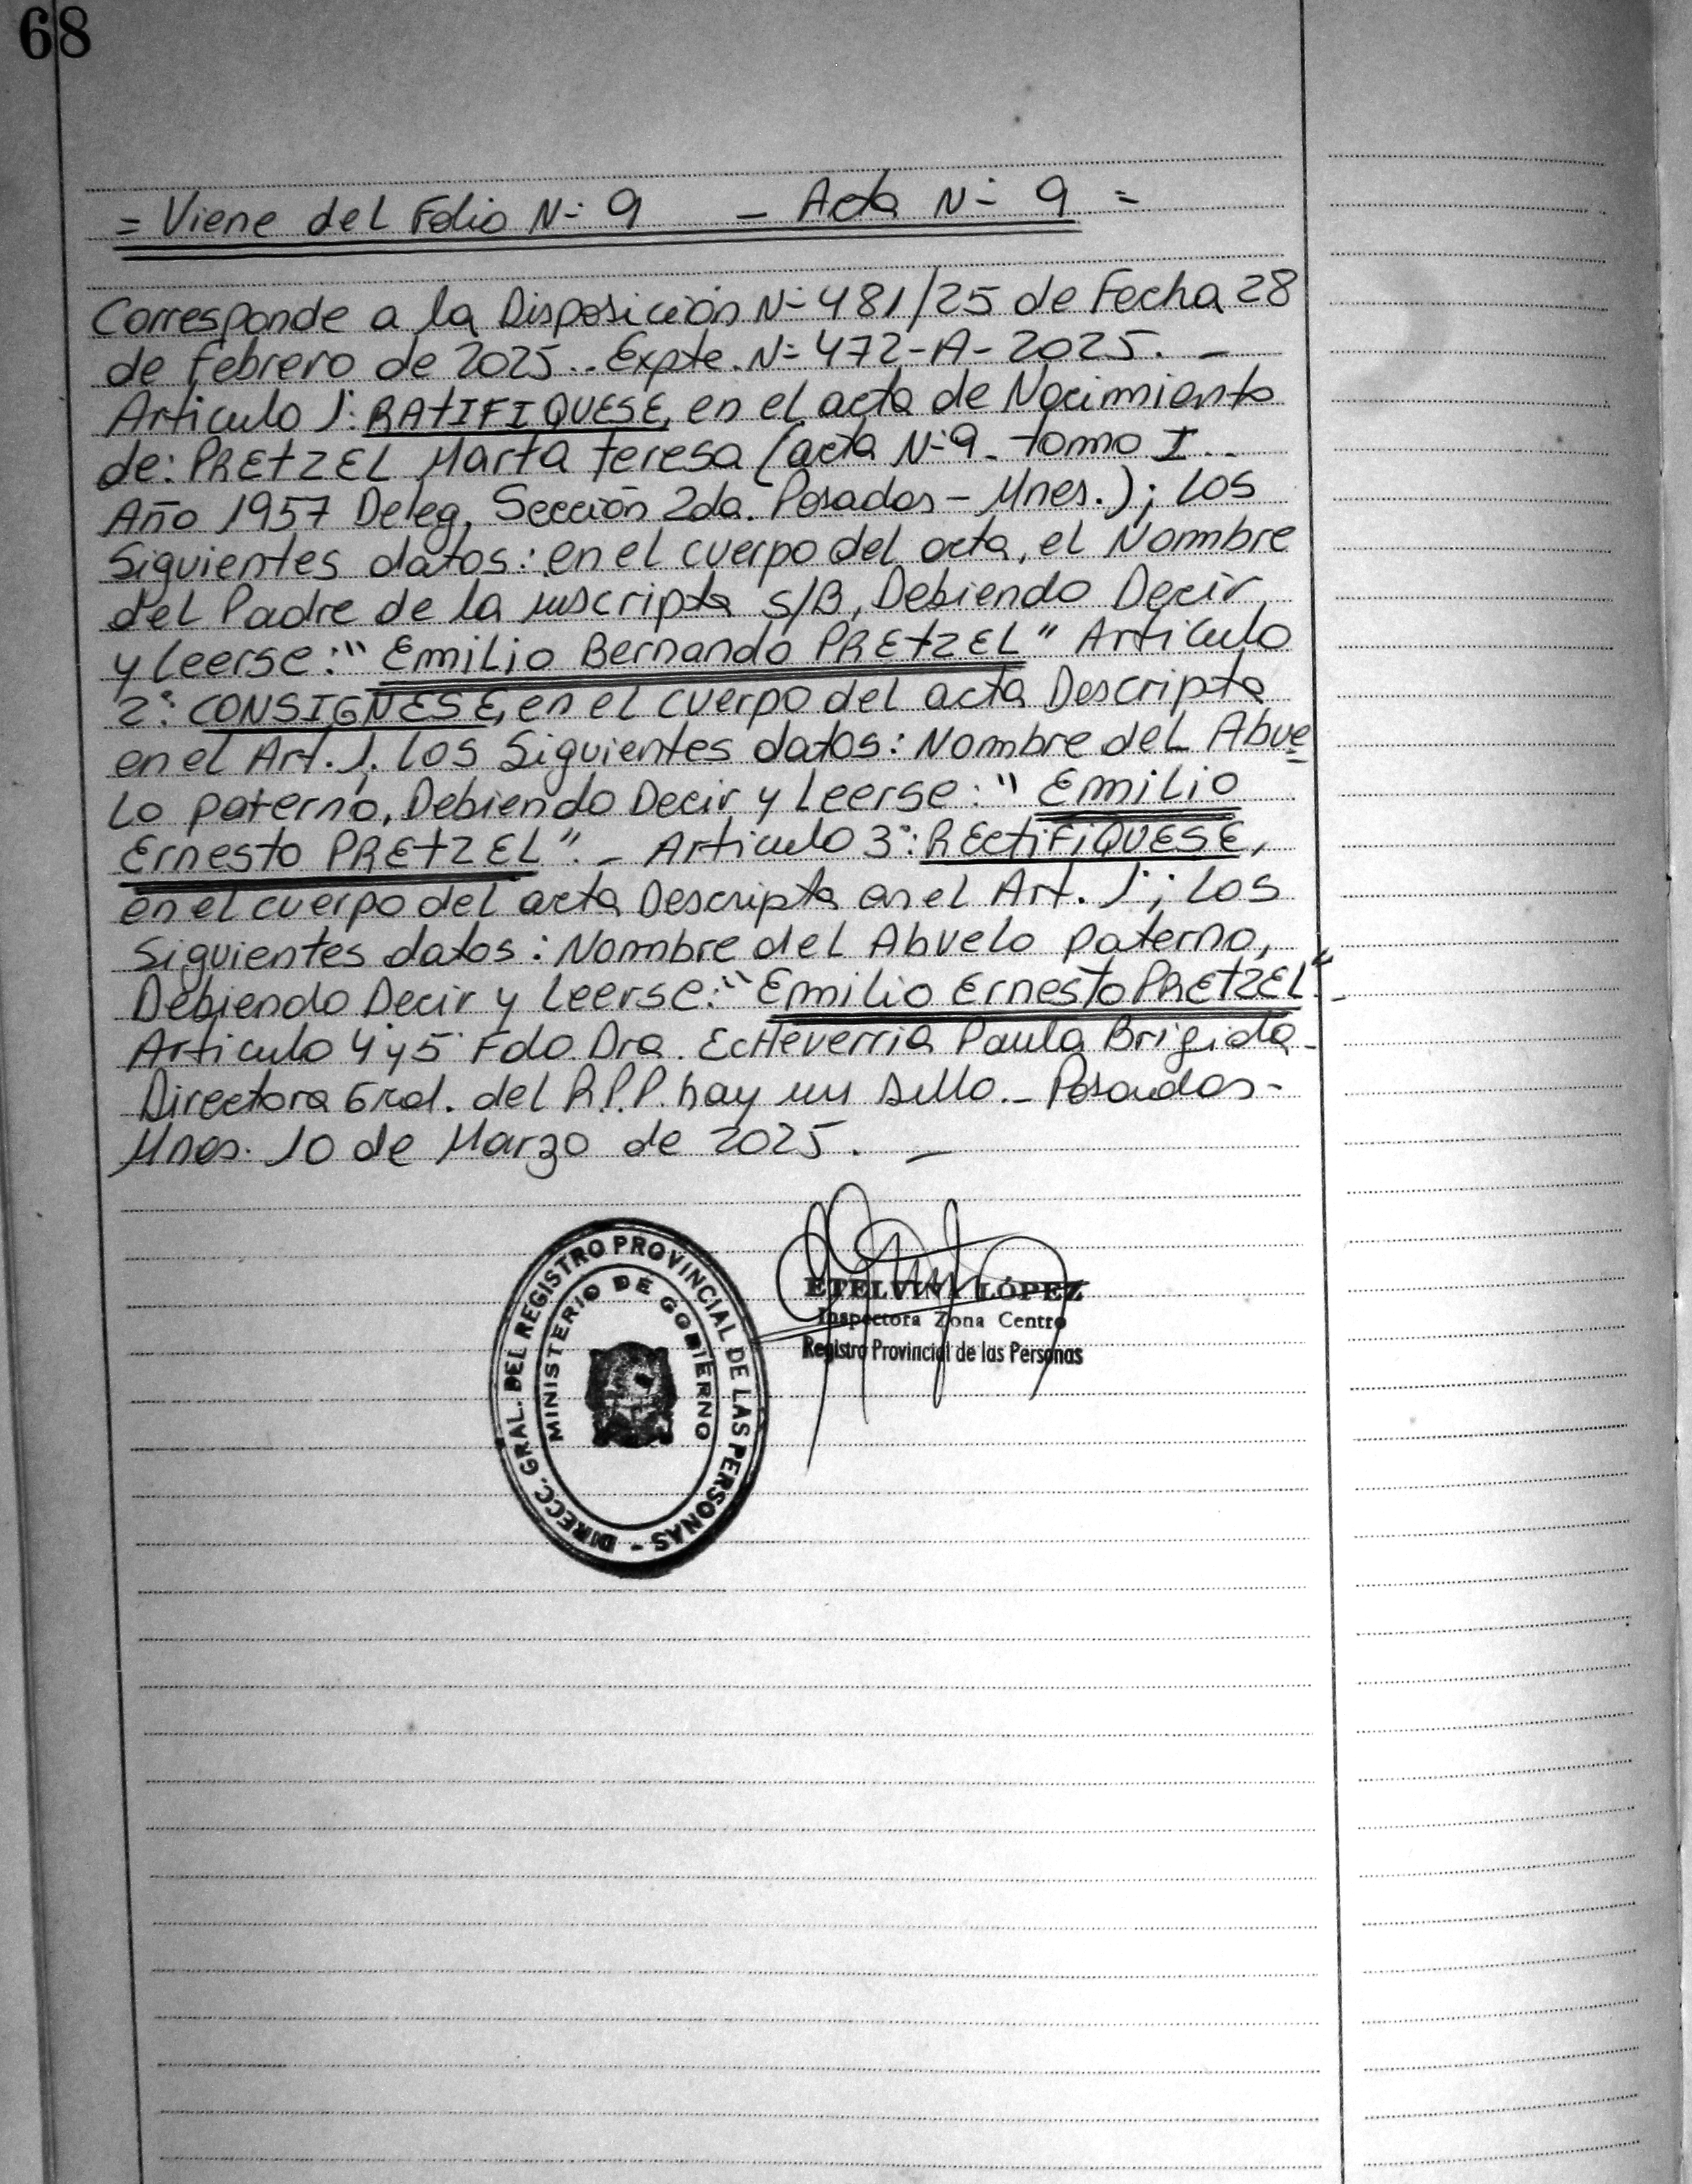 68
= Viene del Folio N- 9 - Acta N- 9 =
Corresponde a la Disposición N- 481/25 de Fecha 28
de febrero de 2025.. Expte. N- 472-A-2025. -
Articulo 1°: RAtIFIQUESE, en el acta de Nacimiento
de: PREtzEL Marta teresa (acta N-9- tomo I..
Año 1957 Deleg. Sección 2da. Posadas - Mnes.); Los
Siguientes datos: en el cuerpo del acta, el Nombre
del Padre de la inscripta S/B, Debiendo Decir
y Leerse: "Emilio Bernando PREtzEL" Articulo
2°: CONSIGNESE, en el cuerpo del acta Descripta
en el Art. 1, Los Siguientes datos: Nombre del Abue
Lo paterno, Debiendo Decir y Leerse: "Emilio
Ernesto PREtzEL". - Articulo 3°: REctiFiQUESE,
en el cuerpo del acta Descripta en el Art. 1°; Los
Siguientes datos: Nombre del Abuelo paterno,
Debiendo Decir y Leerse: "Emilio Ernesto PREtzEL" -
Articulo 4 y 5 Fdo Dra. EcHeverria Paula Brigida -
Directora Gral. del R.P.P. hay un sello. - Posadas -
Mnes. 10 de Marzo de 2025. -
DIRECC. GRAL. DEL REGISTRO PROVINCIAL DE LAS PERSONAS -
MINISTERIO DE GOBIERNO
ETELVINA LÓPEZ
Inspectora Zona Centro
Registro Provincial de las Personas